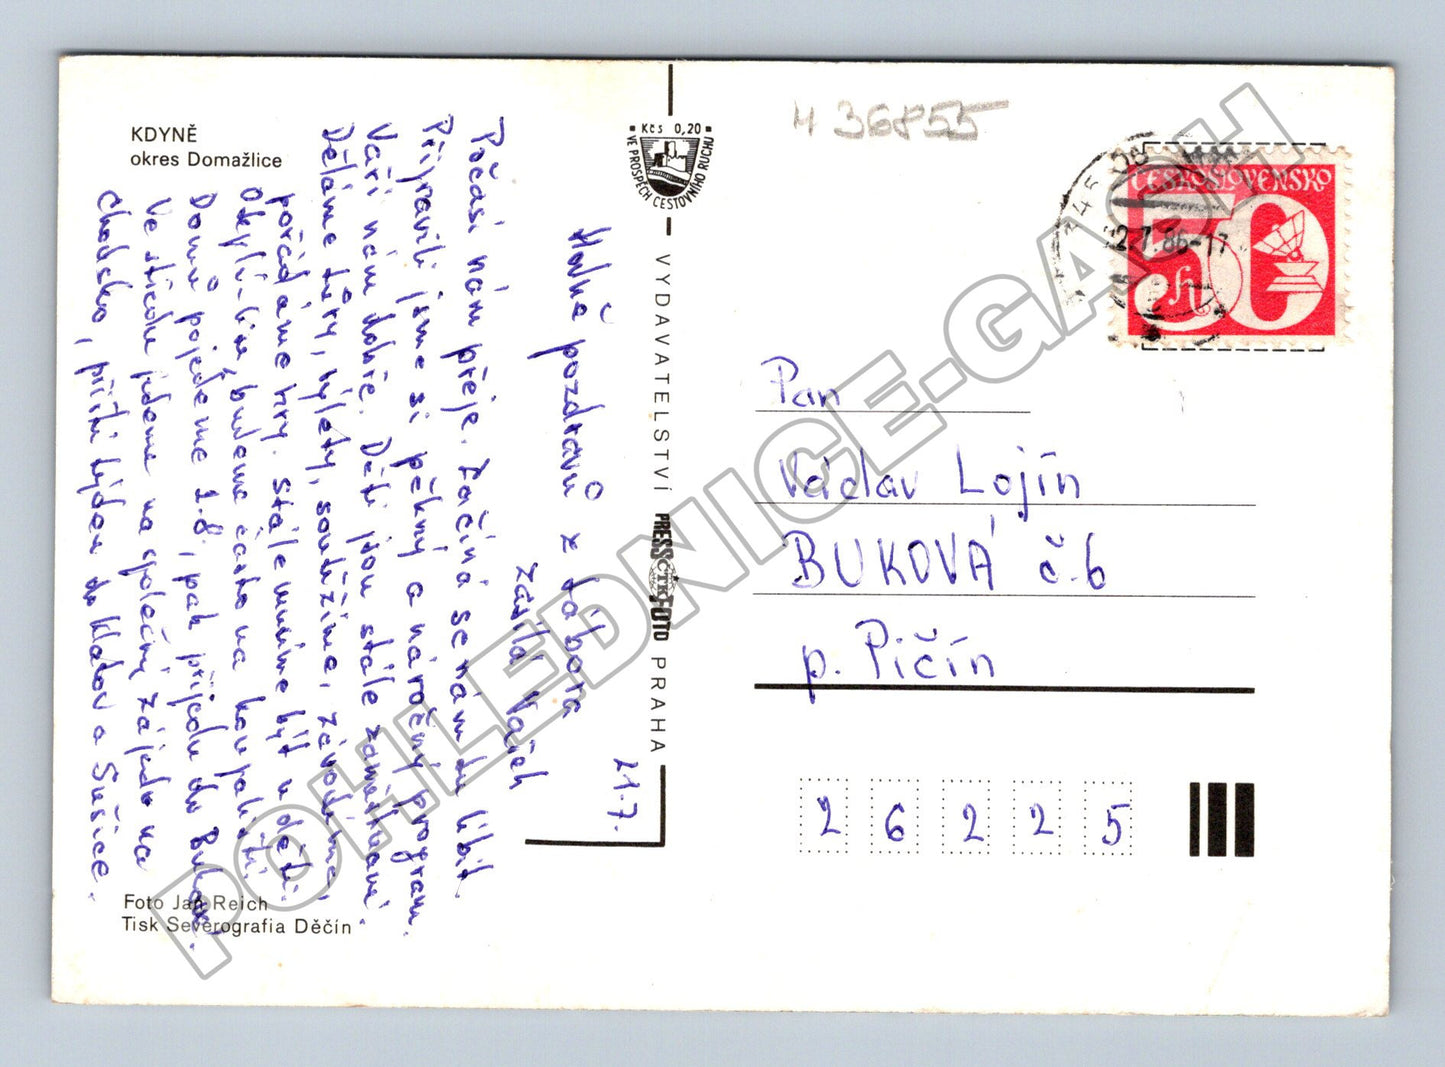 KDYNĚ
okres Domažlice
21.7.
Hodně pozdravů z tábora
zasílá Vašek
Počasí nám přeje. Začíná se nám tu líbit.
Připravili jsme si pěkný a náročný program.
Vaří nám dobře. Děti jsou stále zaměstnaní.
Děláme túry, výlety, soutěžíme, závodíme,
pořádáme hry. Stále musíme být u dětí.
Oteplí-li se, budeme často na koupališti.
Domů pojedeme 1.8., pak přijedu do Bukové.
Ve středu jdeme na společný zájezd na
Chodsko, příští týden do Klatov a Sušice.
Foto Jan Reich
Tisk Severografia Děčín
Kčs 0,20
VE PROSPĚCH CESTOVNÍHO RUCHU
VYDAVATELSTVÍ PRESSFOTO PRAHA
ČTK
H 36855
345 06
22.7.86-17
ČESKOSLOVENSKO
50 h
Pan
Václav Lojín
BUKOVÁ č.6
p. Pičín
2 6 2 2 5
POHLEDNICE-GACH